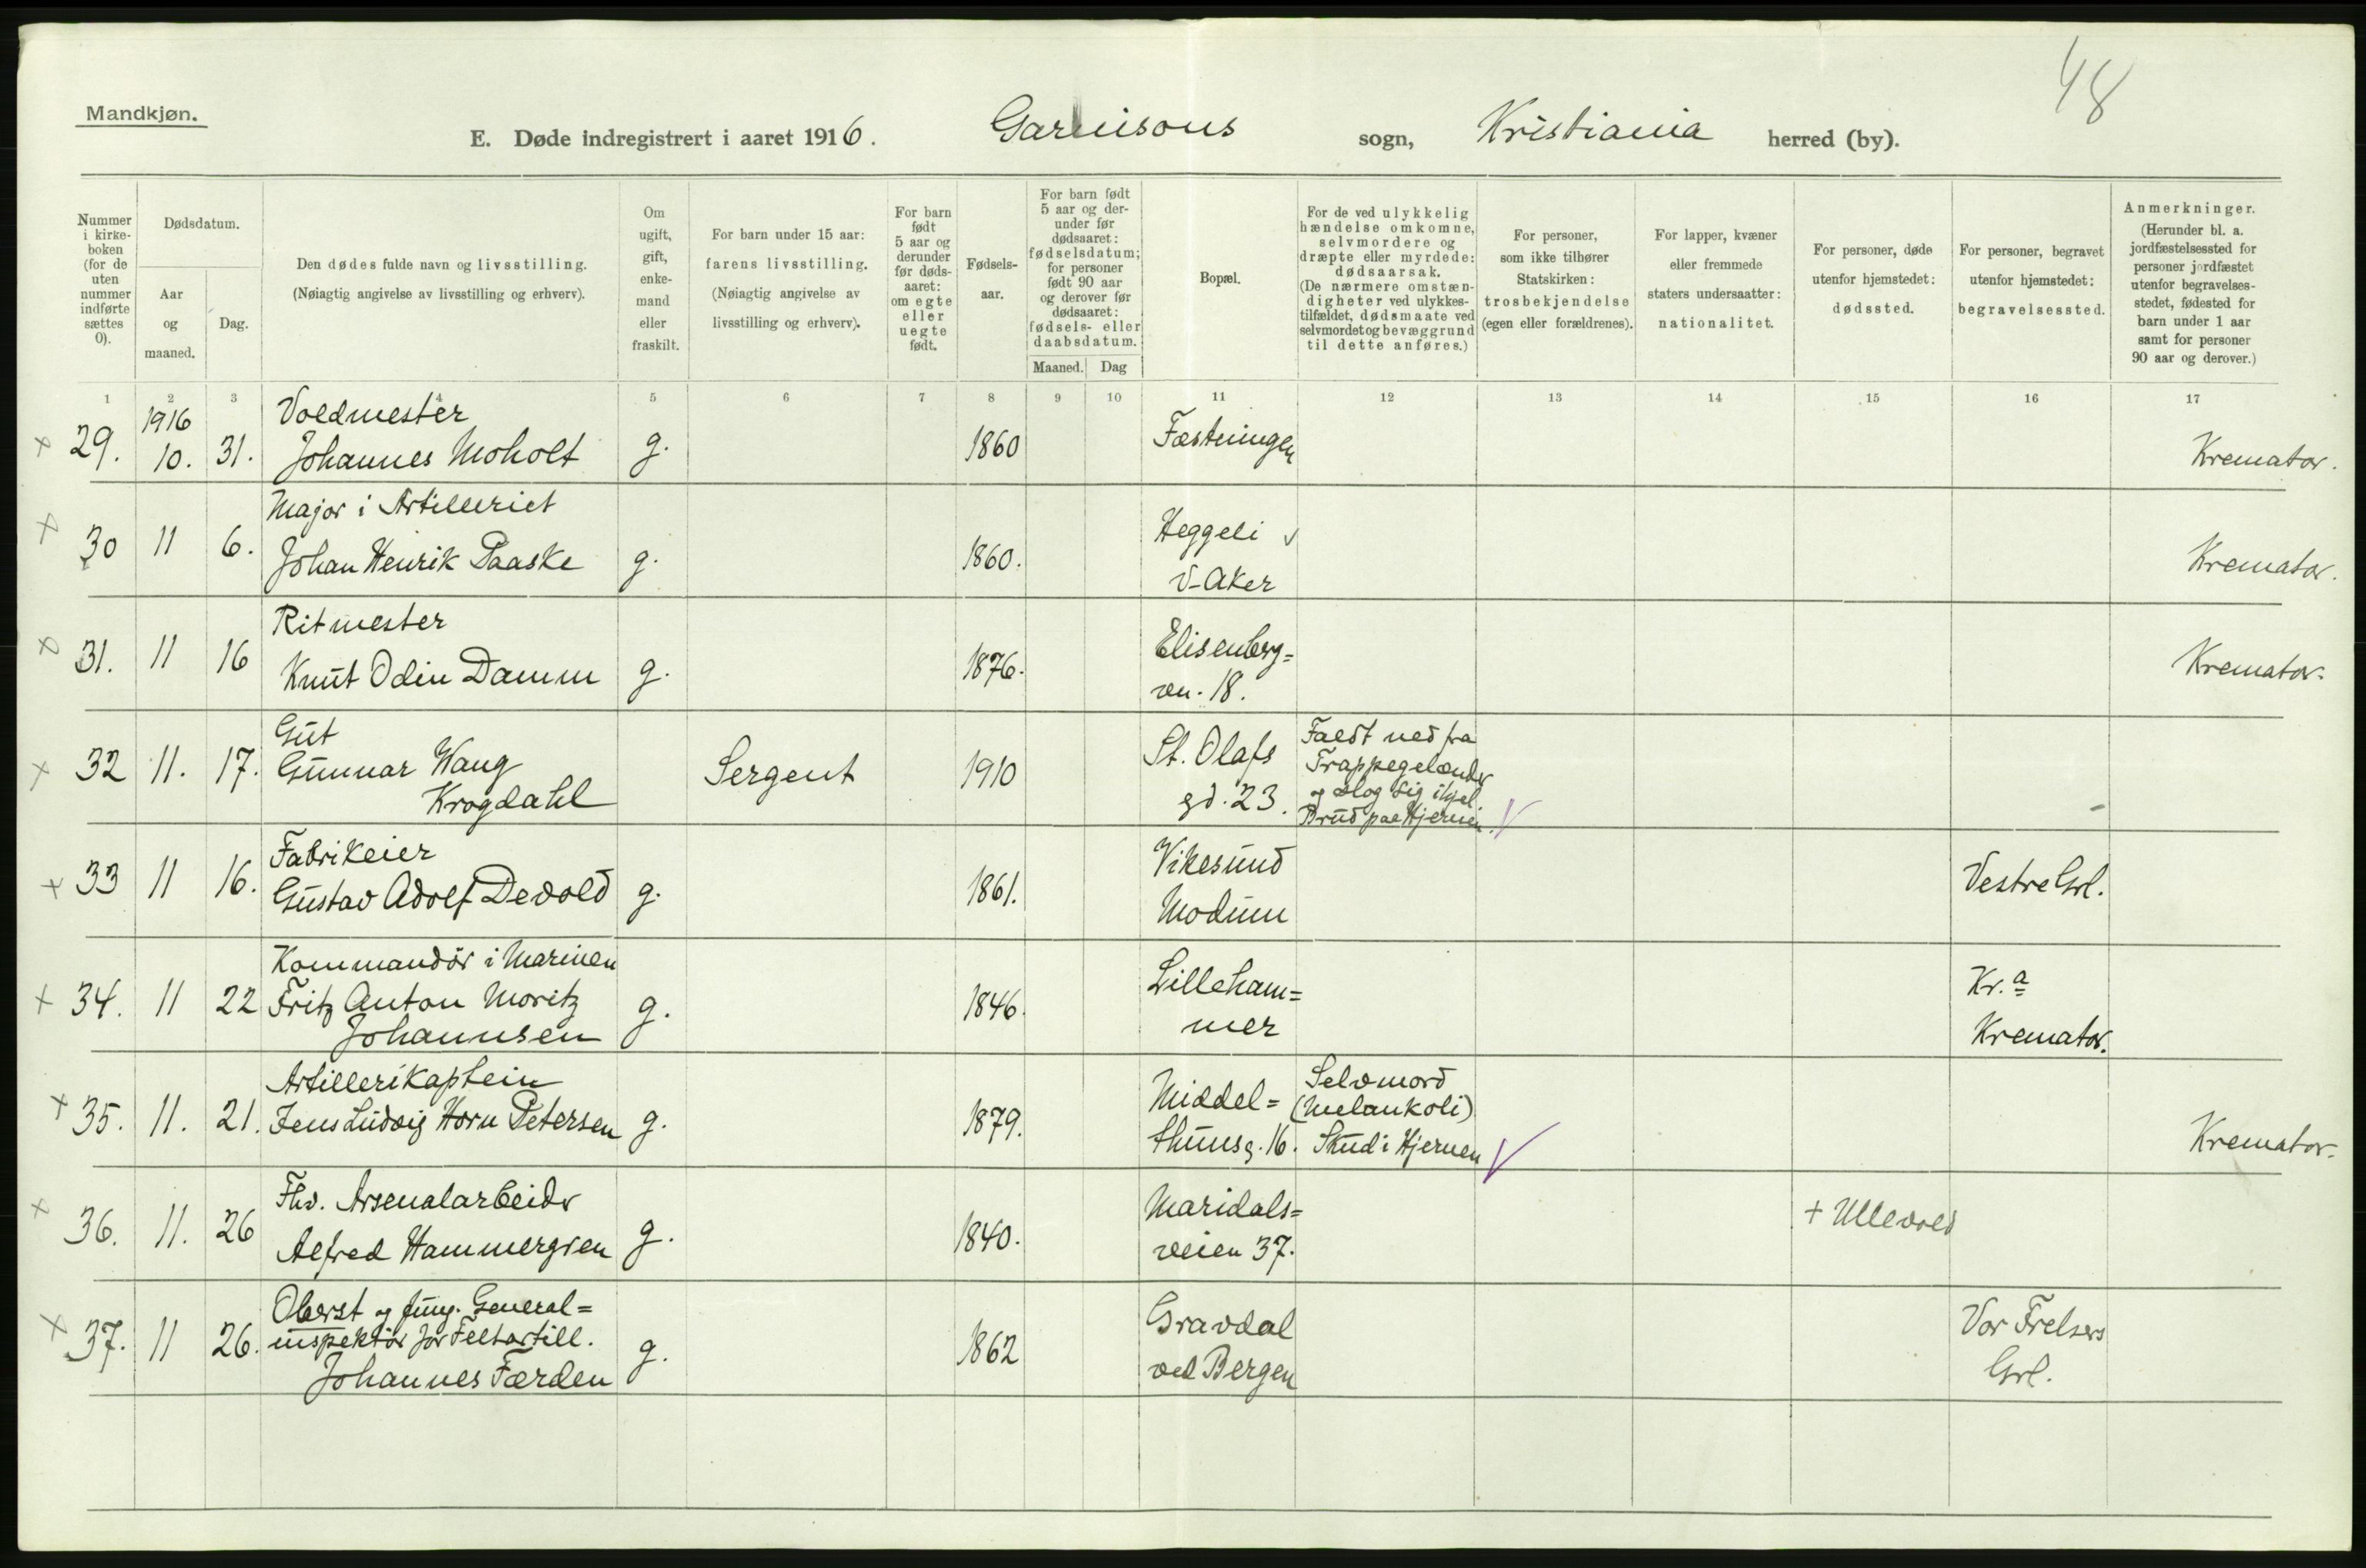 48
Mandkjøn.
E. Døde indregistrert i aaret 1916. Garnisons sogn, Kristiania herred (by).
Nummer i kirke-boken (for de uten nummer indførte sættes 0).
Dødsdatum.
Aar og maaned.
Dag.
Den dødes fulde navn og livsstilling.
(Nøiagtig angivelse av livsstilling og erhverv).
Om ugift, gift, enke-mand eller fraskilt.
For barn under 15 aar:
farens livsstilling.
(Nøiagtig angivelse av
livsstilling og erhverv).
For barn født 5 aar og derunder før døds-aaret: om egte eller uegte født.
Fødsels-aar.
For barn født 5 aar og der-under før dødsaaret: fødselsdatum; for personer født 90 aar og derover før dødsaaret: fødsels- eller daabsdatum.
Maaned. Dag
Bopæl.
For de ved ulykkelig hændelse omkomne, selvmordere og dræpte eller myrdede: dødsaarsak. (De nærmere omstæn-digheter ved ulykkes-tilfældet, dødsmaate ved selvmordet og bevæggrund til dette anføres.)
For personer, som ikke tilhører Statskirken: trosbekjendelse (egen eller forældrenes).
For lapper, kvæner eller fremmede staters undersaatter: nationalitet.
For personer, døde utenfor hjemstedet: dødssted.
For personer, begravet utenfor hjemstedet: begravelsessted.
Anmerkninger.
(Herunder bl. a. jordfæstelsessted for personer jordfæstet utenfor begravelses-stedet, fødested for barn under 1 aar samt for personer 90 aar og derover.)
1 2 3 4 5 6 7 8 9 10 11 12 13 14 15 16 17
1916 Voldmester
+ 29. 10. 31. Johannes Moholt g. 1860 Fæstningen Kremator.
Major i Artilleriet
+ 30 11 6. Johan Henrik Paaske g. 1860. Heggeli v
V-Aker Kremator.
Ritmester
+ 31. 11 16 Knut Odin Damm g. 1876. Elisenberg=
vn. 18. Kremator.
Gut
+ 32 11. 17. Gunnar Wang
Krogdahl Sergent 1910 St. Olafs
gd. 23. Faldt ned fra
Trappegelænder
og slog sig ihjel.
Brud paa Hjernen. V
Fabrikeier
+ 33 11 16. Gustav Adolf Devold g. 1861. Vikesund
Modum Vestre Grl.
Kommandör i Marinen
+ 34. 11 22 Fritz Anton Moritz
Johannsen g. 1846. Lilleham=
mer Kr.a
Kremator.
Artillerikaptein
+ 35. 11. 21. Jens Ludvig Horn Petersen g. 1879. Middel=
thunsg. 16. Selvmord
(Melankoli)
Skud i Hjernen V Kremator.
Fhv. Arsenalarbeider
+ 36. 11. 26 Alfred Hammergren g. 1840. Maridals=
veien 37. + Ullevold
Oberst og fung. General=
inspektör for Feltartill.
+ 37. 11 26. Johannes Færden g. 1862 Gravdal
ved Bergen Vor Frelsers
Grl.